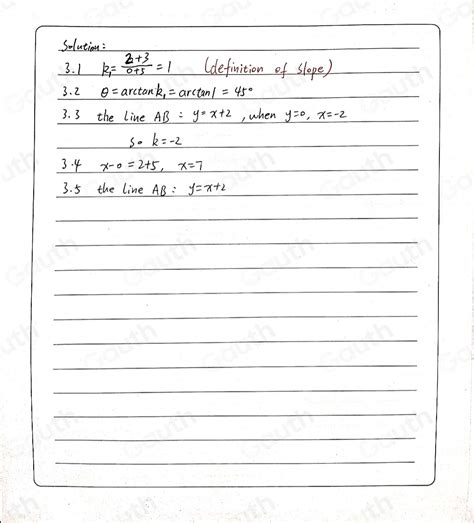 Solution:
3.1 k₁= 2+3/0+5 = 1 (definition of slope)
3.2 θ = arctan k₁ = arctan 1 = 45°
3.3 the line AB : y = x+2 , when y=0, x=-2
so k=-2
3.4 x-0 = 2+5, x=7
3.5 the line AB : y = x+2